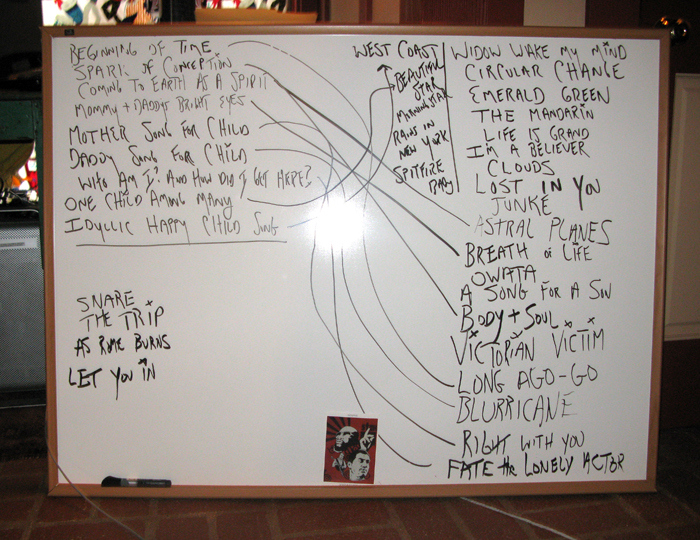 BEGINNING OF TIME
SPARK OF CONCEPTION
COMING TO EARTH AS A SPIRIT
MOMMY + DADDYS BRIGHT EYES
MOTHER SONG FOR CHILD
DADDY SONG FOR CHILD
WHO AM I? AND HOW DID I GET HERE?
ONE CHILD AMING MANY
IDYLLIC HAPPY CHILD SONG
SNARE
THE TRIP
AS ROME BURNS
LET YOU IN
WEST COAST
BEAUTIFUL
STAR
MORNING STAR
RAINS IN
NEW YORK
SPITFIRE
BABY
WIDOW WAKE MY MIND
CIRCULAR CHANGE
EMERALD GREEN
THE MANDARIN
LIFE IS GRAND
I'M A BELIEVER
CLOUDS
LOST IN YOU
JUNKE
ASTRAL PLANES
BREATH OF LIFE
OWATA
A SONG FOR A SON
BODY + SOUL
VICTORIAN VICTIM
LONG AGO-GO
BLURRICANE
RIGHT WITH YOU
FATE THE LONELY ACTOR